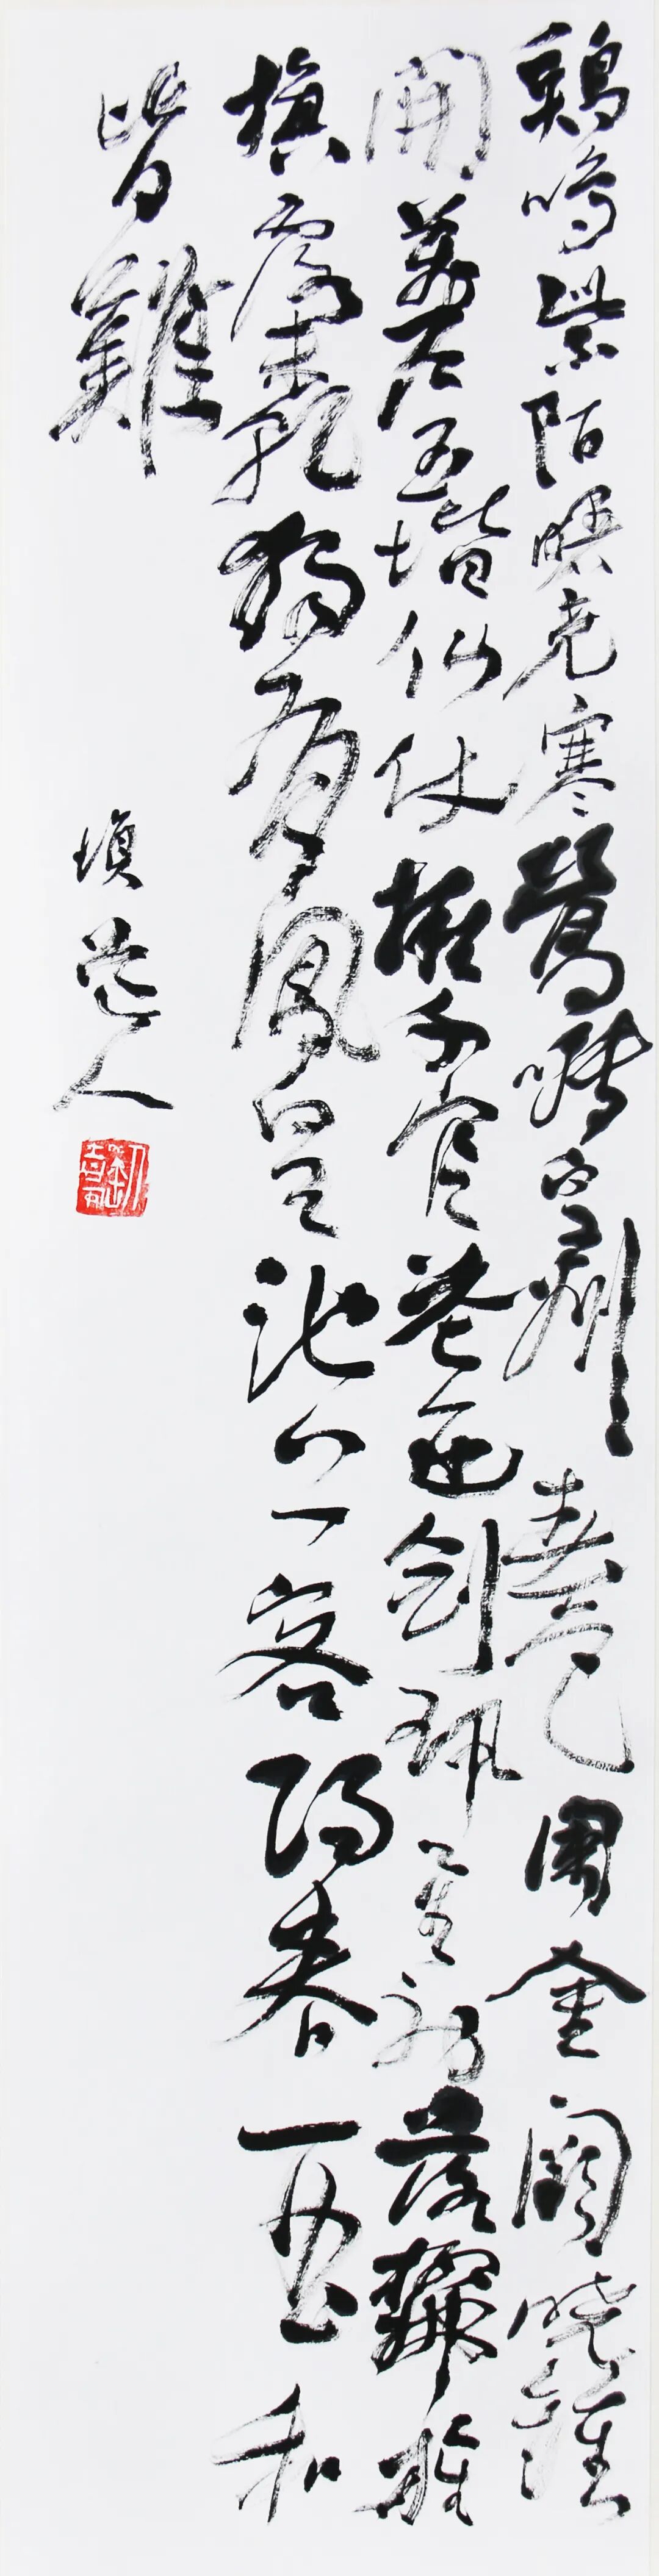 鷄鳴紫陌曙光寒鶯囀皇州春色闌金闕曉鐘
開萬戶玉階仙仗擁千官花迎劍珮星初落柳拂旌
旗露未乾獨有鳳皇池上客陽春一曲和
皆難
道人